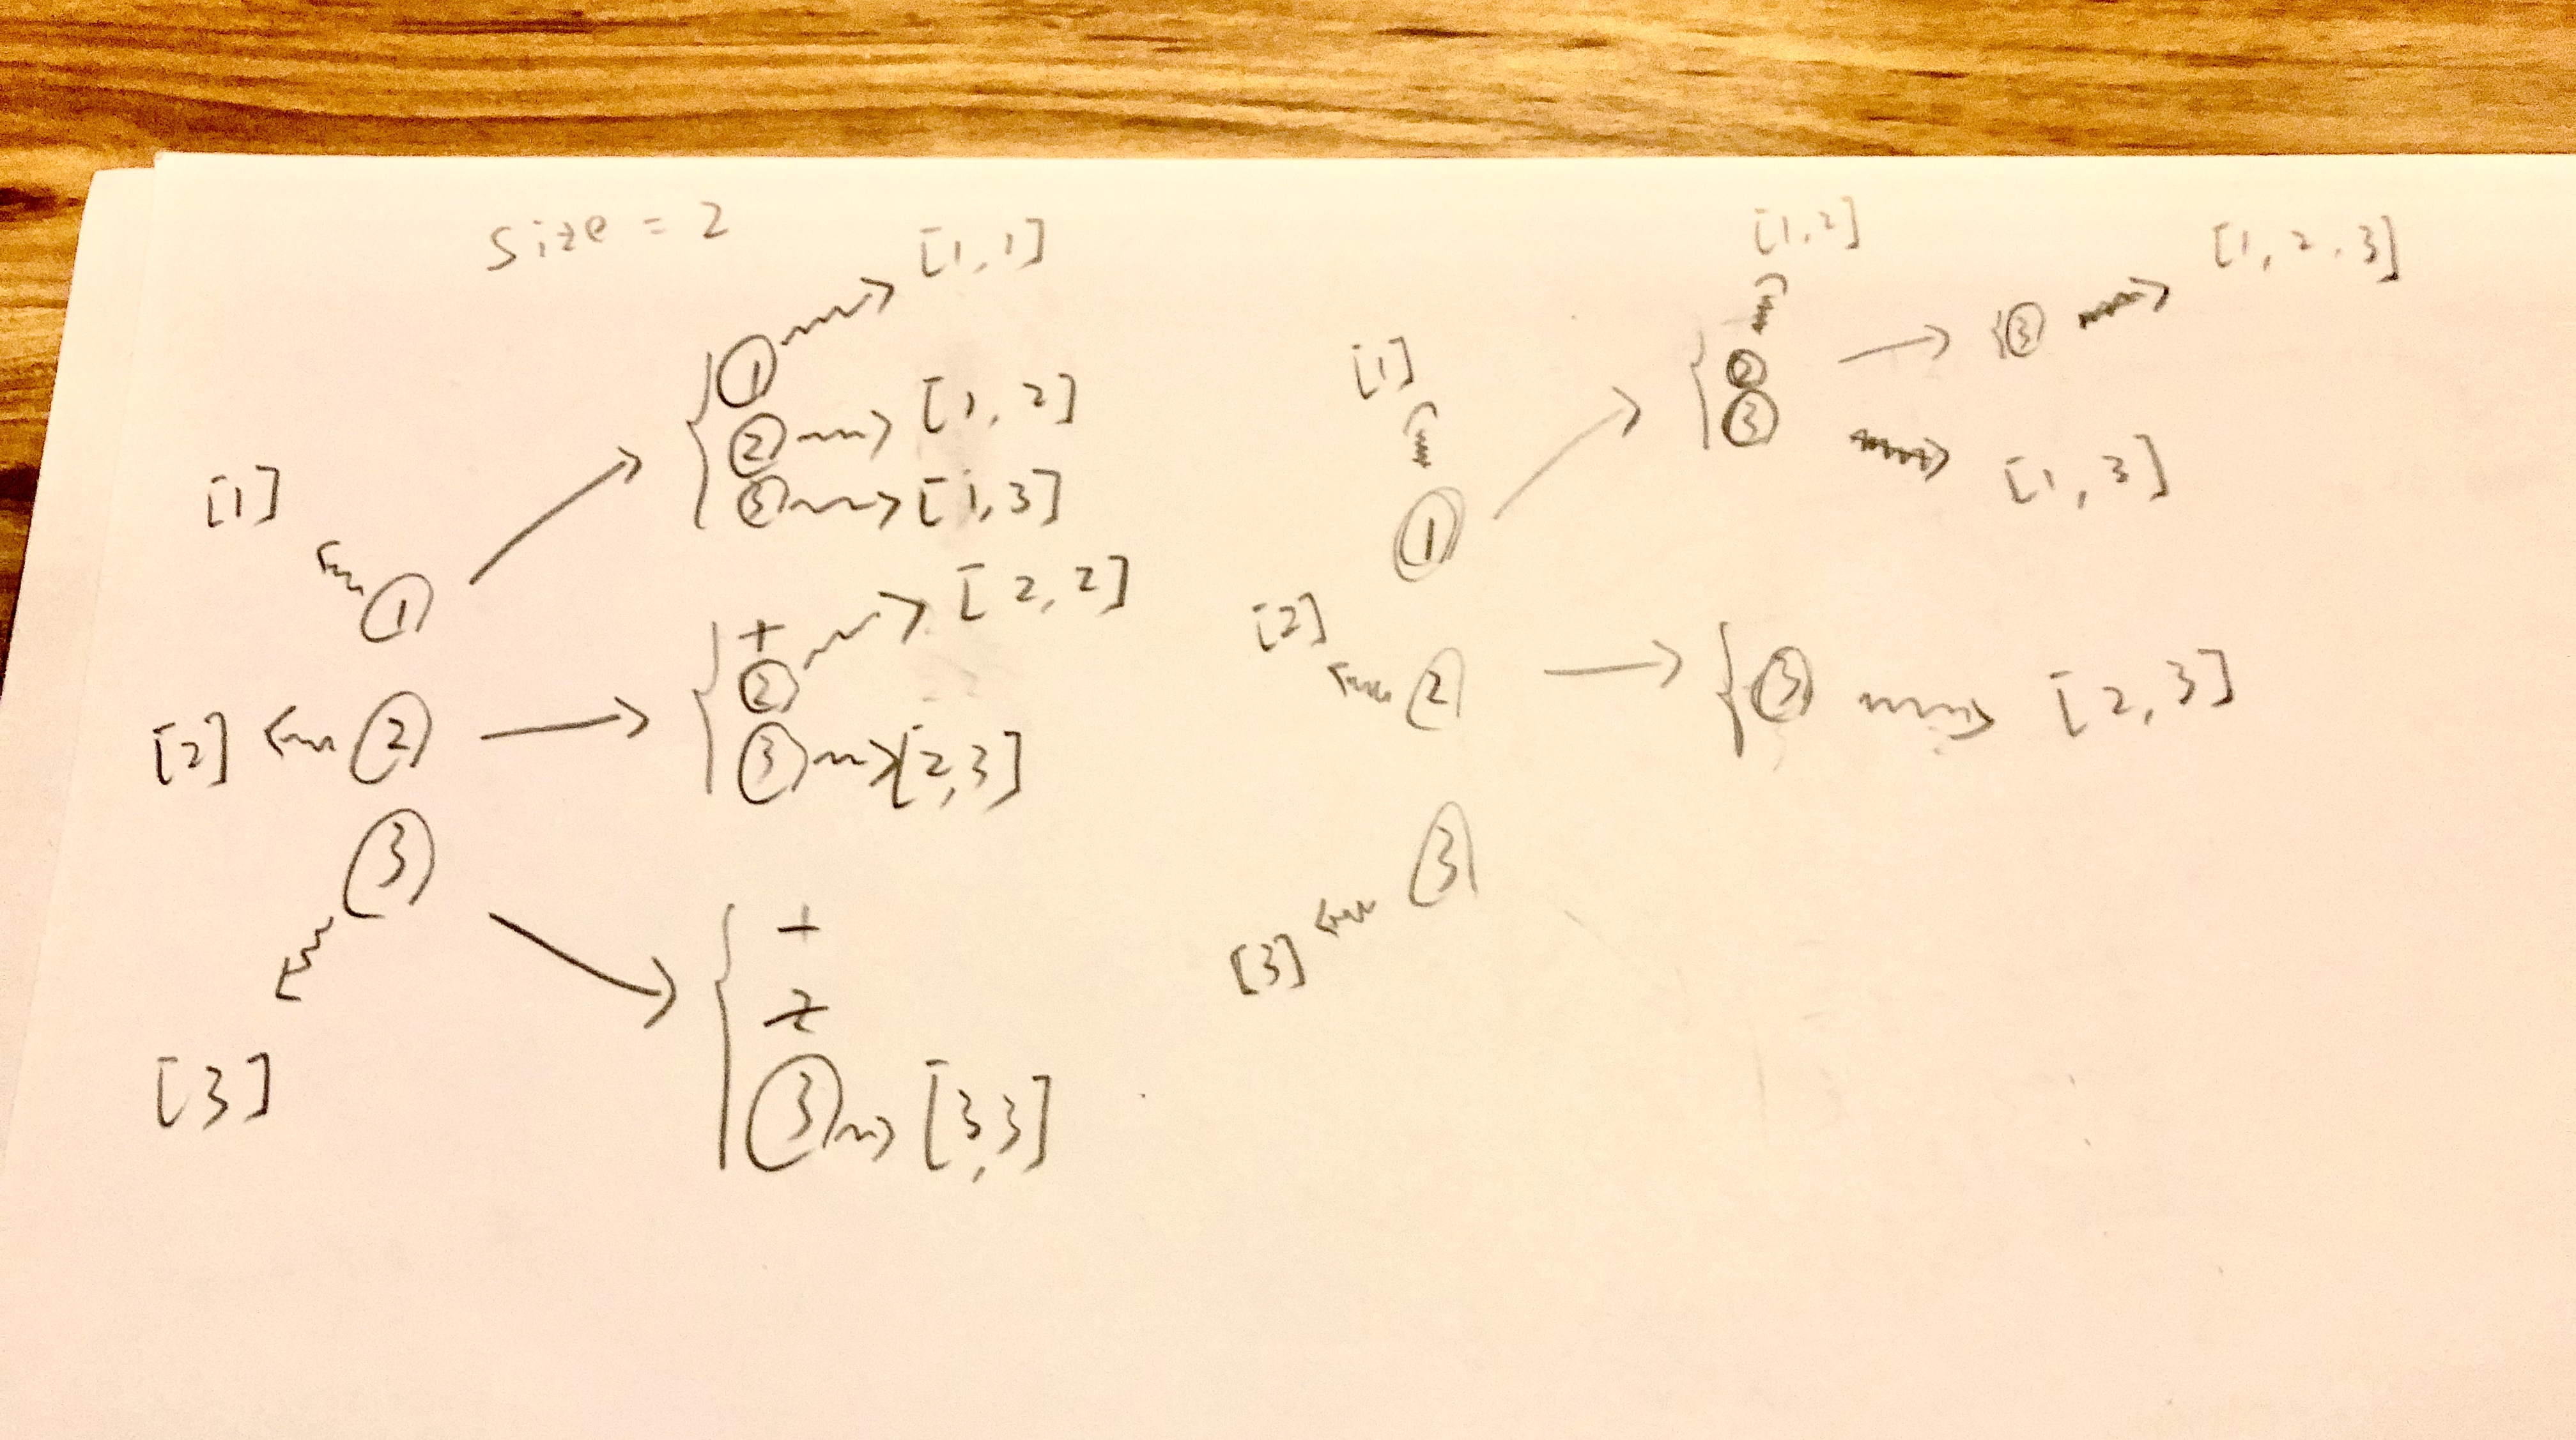 size = 2
[1,1]
①
[1,2]
②
[1,3]
③
[1]
①
[2,2]
1
②
[2]
②
[2,3]
③
③
1
2
[3]
③
[3,3]
[1,2]
[1,2,3]
③
[1]
②
③
[1,3]
①
[2]
②
③
[2,3]
③
[3]